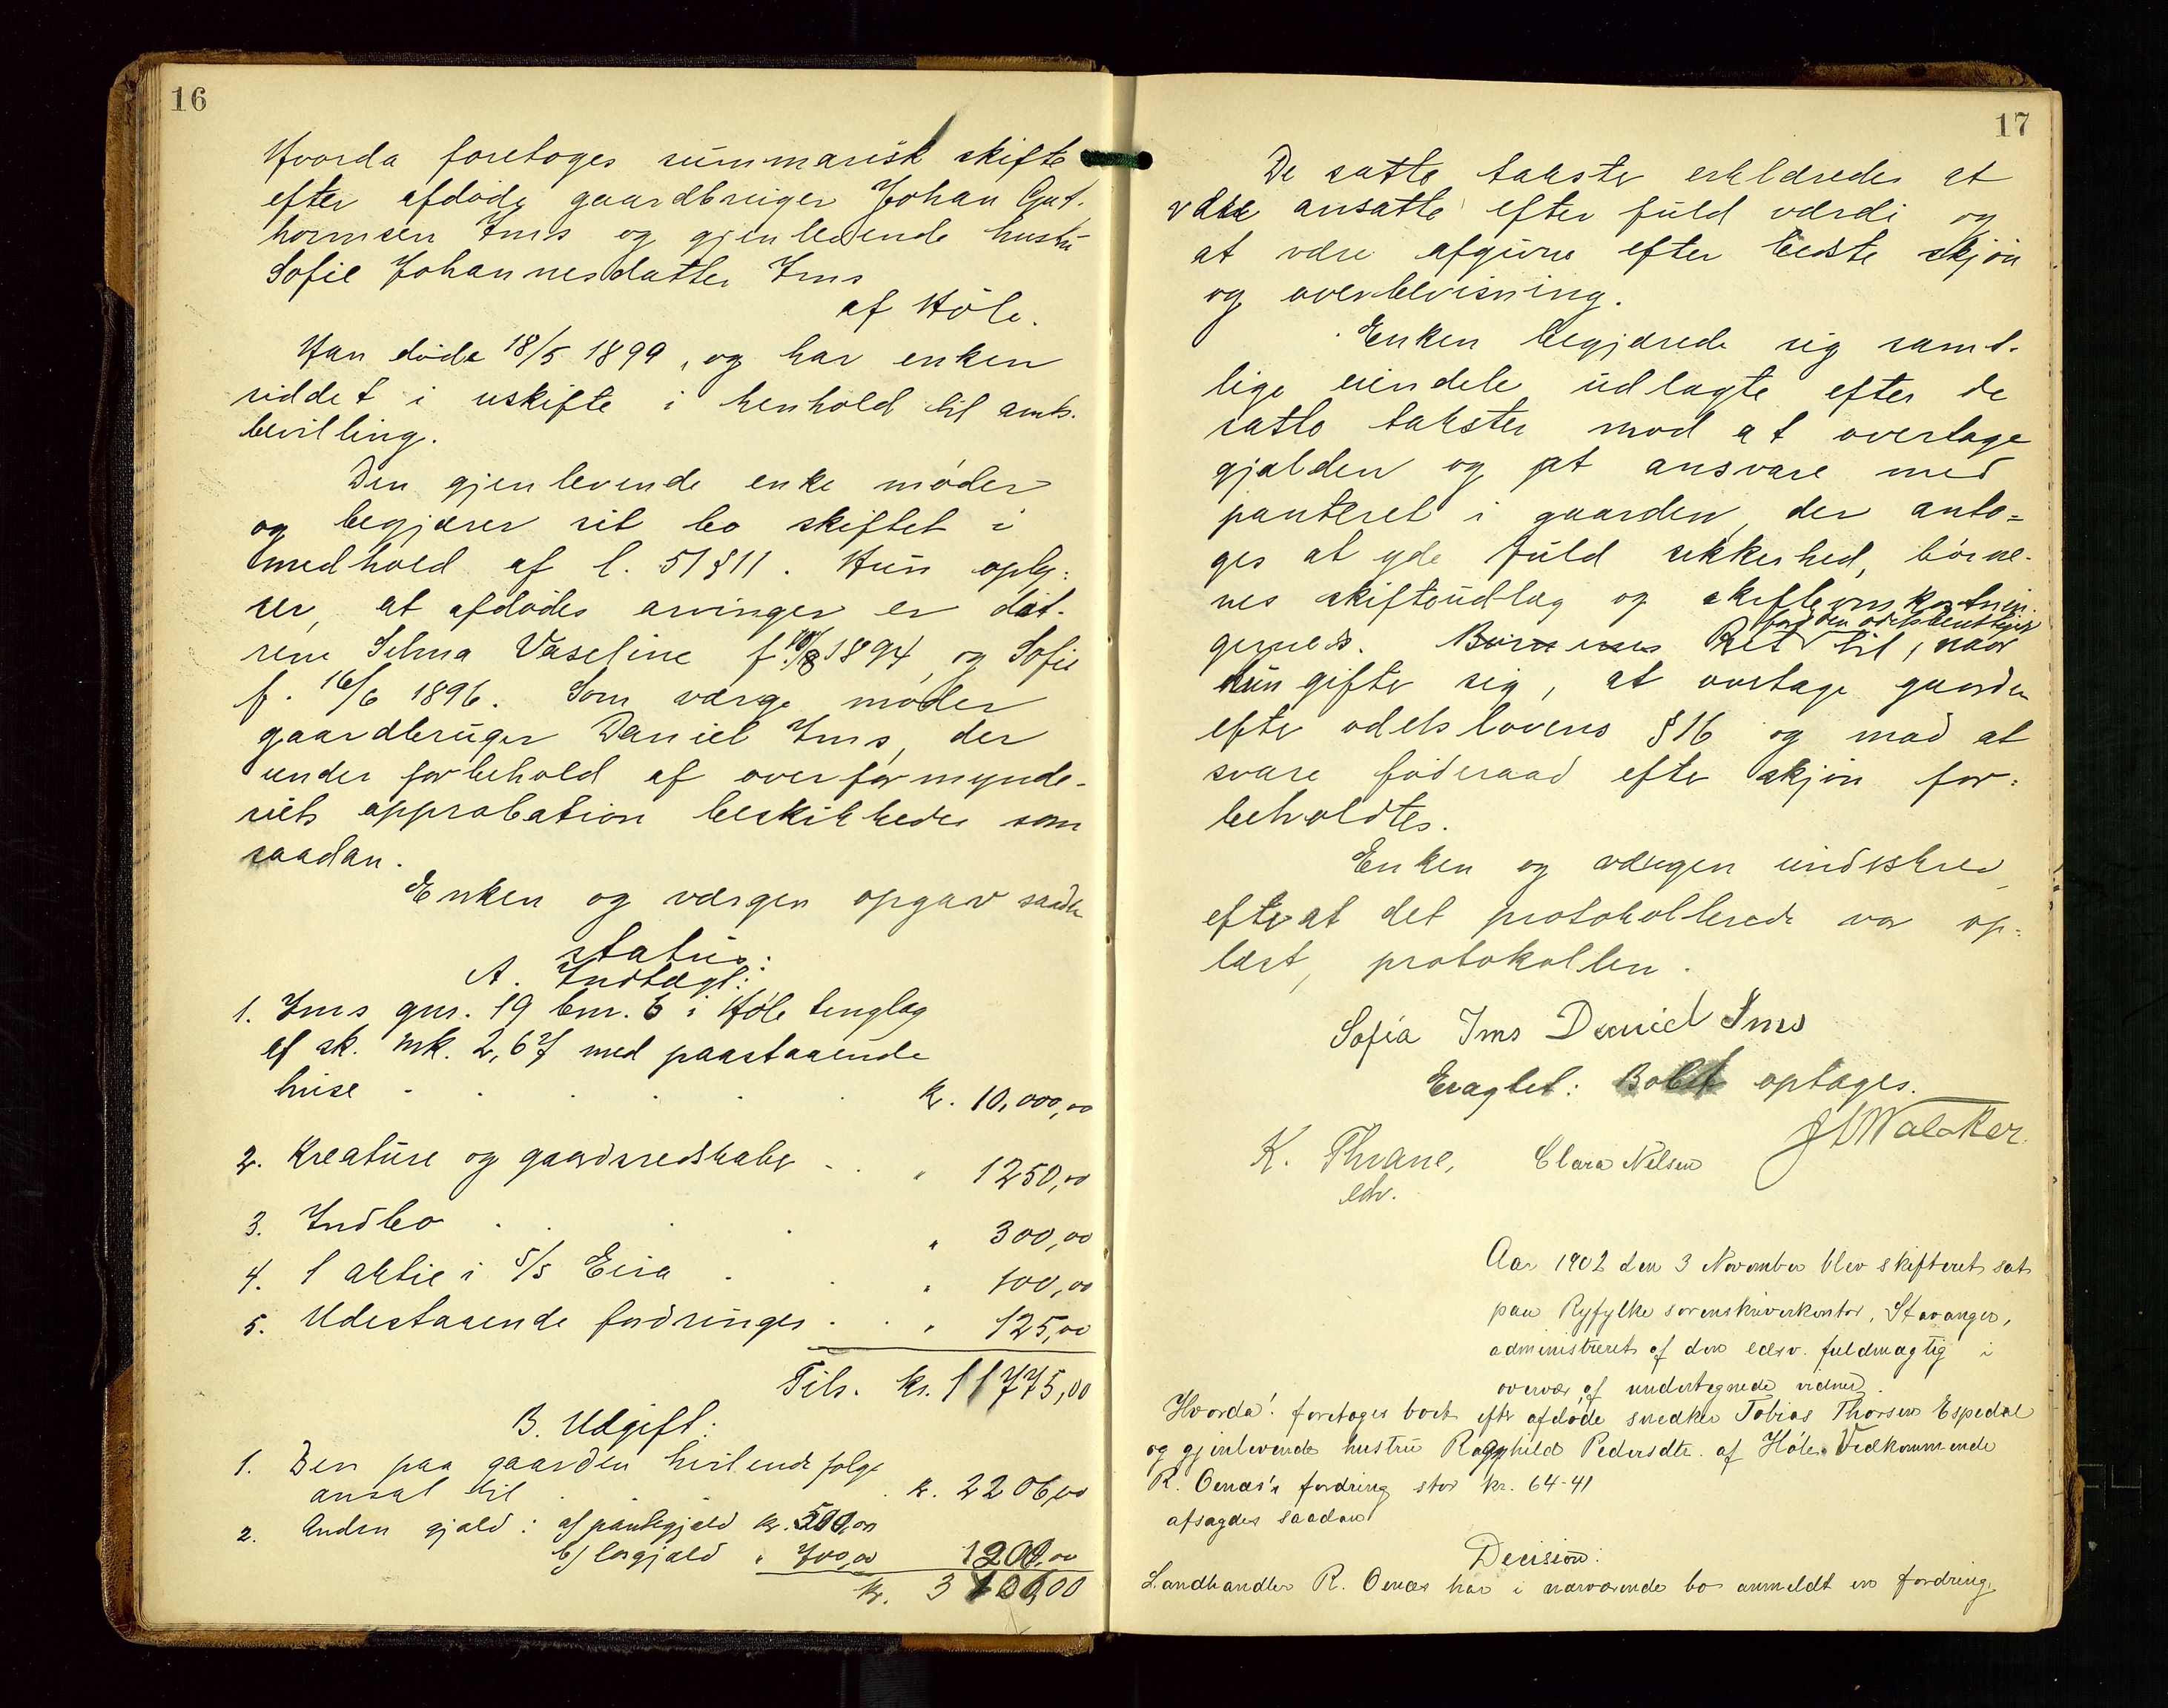 16
Hvorda foretoges summarisk skifte
efter afdøde gaardbruger Johan Gut-
hormsen Ims og gjenlevende hustru
Sofie Johannesdatter Ims
af Høle.
Han døde 18/5 1899, og har enken
siddet i uskifte i henhold til amts-
bevilling.
Den gjenlevende enke møder
og begjærer sit bo skiftet i
medhold af l. 51 § 11. Hun oply-
ser, at afdødes arvinger er døt-
rene Selma Vaseline f. 1894, og Sofie
f. 16/6 1896. Som værge møder
gaardbruger Daniel Ims, der
under forbehold af overformynde-
riets approbation beskikkedes som
saadan.
Enken og værgen opgav saadan
status:
A. Indtægt:
1. Ims gnr. 19 bnr. 6 i Høle tinglag
af sk. mk. 2,67 med paastaaende
huse . . . . kr. 10,000,00
2. Kreature og gaardsredskaber . . " 1250,00
3. Indbo . . . " 300,00
4. 1 aktie i S/S Eira . . " 100,00
5. Udestaaende fordringer . . " 125,00
Tils. kr. 11775,00
B. Udgift:
1. Den paa gaarden hvilende følge
ansat til . . kr. 2206,00
2. Anden gjæld: a/ pantegjæld kr. 500,00
b/ løsgjæld " 700,00 1200,00
kr. 3406,00
17
De satte takster erklæredes at
være ansatte efter fuld værdi og
at være afgivne efter bedste skjøn
og overbevisning.
Enken begjærede sig samt-
lige eiendele udlagte efter de
satte takster mod at overtage
gjælden og at ansvare med
panteret i gaarden, der anto-
ges at yde fuld sikkerhed, børne-
nes skifteudlæg og skifteomkostnin-
for den odelsberettigede
gerne. Børnenes Ret til, naar
hun gifter sig, at overtage gaarden
efter odelslovens § 16 og mod at
svare føderaad efter skjøn for-
beholdtes.
Enken og værgen underskrev,
efter at det protokollerede var op-
læst, protokollen.
Sofia Ims Daniel Ims
Eragtet: Boet optages.
J Walaker.
K. Thrane, Clara Nilsen
edv.
Aar 1902 den 3 November blev skifteret sat
paa Ryfylke sorenskriverkontor, Stavanger,
administreret af den edsv. fuldmægtig i
overvær af undertegnede vidner.
Hvorda: foretoges boet efter afdøde snedker Tobias Thorsen Espedal
og gjenlevende hustru Ragnhild Pedersdtr. af Høle. Vedkommende
R. Oenæs's fordring stor kr. 64-41
afsagdes saadan
Decision:
Landhandler R. Oenæs har i nærværende bo anmeldt en fordring